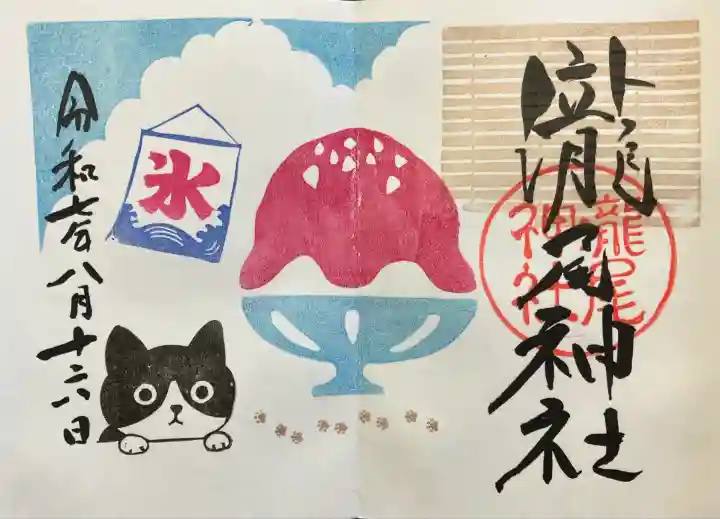 瀧尾神社
瀧尾
神社
氷
令和七年八月十六日